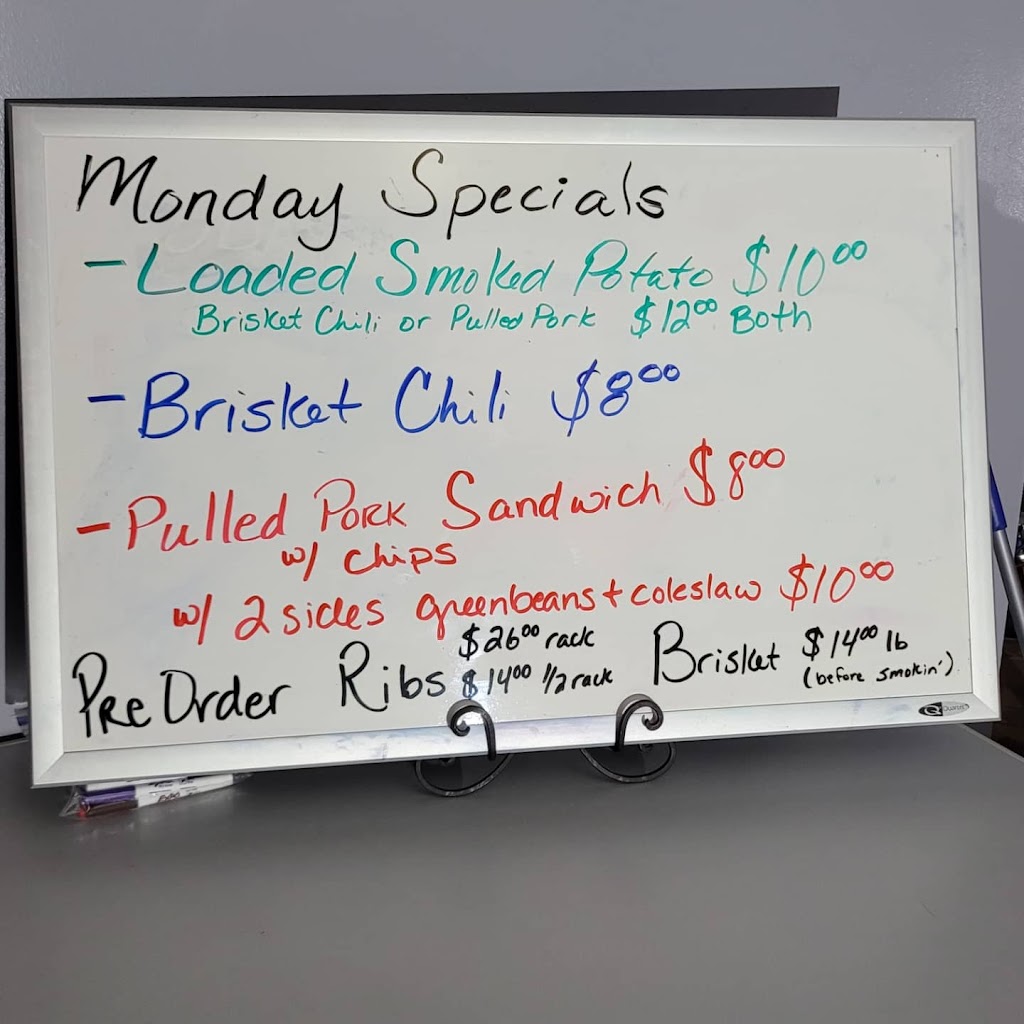 Monday Specials
- Loaded Smoked Potato $10⁰⁰
Brisket Chili or Pulled Pork $12⁰⁰ Both
- Brisket Chili $8⁰⁰
- Pulled Pork Sandwich $8⁰⁰
w/ chips
w/ 2 sides greenbeans + coleslaw $10⁰⁰
Pre Order Ribs $26⁰⁰ rack
$14⁰⁰ 1/2 rack
Brisket $14⁰⁰ lb
(before smokin')
Quartet